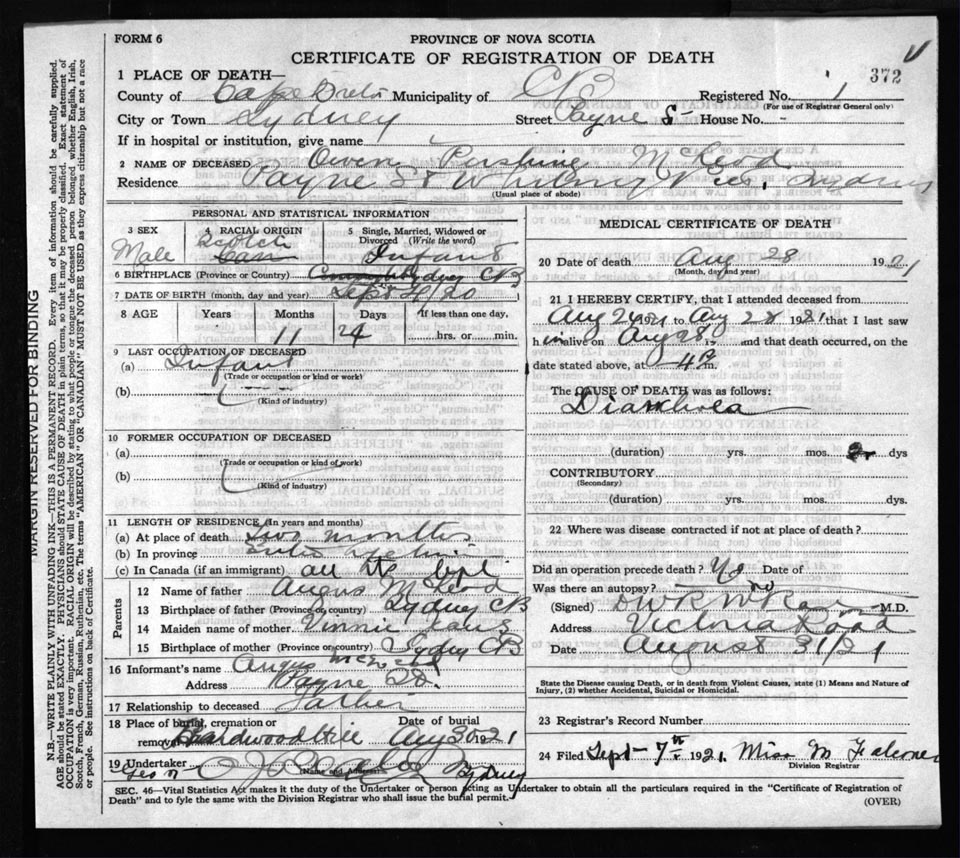 FORM 6
PROVINCE OF NOVA SCOTIA
CERTIFICATE OF REGISTRATION OF DEATH
372
1 PLACE OF DEATH—
County of Cape Breton Municipality of C B Registered No. 1
(For use of Registrar General only)
City or Town Sydney Street Payne St House No. -
If in hospital or institution, give name
2 NAME OF DECEASED Owen Pershing McLeod
Residence Payne St Whitney Pier, Sydney
(Usual place of abode)
PERSONAL AND STATISTICAL INFORMATION
3 SEX
Male
4 RACIAL ORIGIN
Scotch
5 Single, Married, Widowed or Divorced (Write the word)
Infant
6 BIRTHPLACE (Province or Country) Sydney CB
7 DATE OF BIRTH (month, day, and year) Sept 4/20
8 AGE Years Months Days If less than one day,
11 24 hrs. or min.
9 LAST OCCUPATION OF DECEASED
(a) Infant
(Trade or occupation or kind of work)
(b)
(Kind of industry)
10 FORMER OCCUPATION OF DECEASED
(a)
(Trade or occupation or kind of work)
(b)
(Kind of industry)
11 LENGTH OF RESIDENCE (In years and months)
(a) At place of death two months
(b) In province entire life time
(c) In Canada (if an immigrant) all its life
Parents
12 Name of father Angus McLeod
13 Birthplace of father (Province or country) Sydney CB
14 Maiden name of mother Vinnie
15 Birthplace of mother (Province or country) Sydney CB
16 Informant's name Angus McLeod
Address Payne St.
17 Relationship to deceased Father
18 Place of burial, cremation or removal Hardwood Hill
Date of burial Aug 30 1921
19 Undertaker Sydney
(Name and Address)
MEDICAL CERTIFICATE OF DEATH
20 Date of death Aug 28 1921
(Month, day and year)
21 I HEREBY CERTIFY, that I attended deceased from
Aug 24 1921 to Aug 28 1921 that I last saw
him alive on Aug 28 19 and that death occurred, on the
date stated above, at 4 P m.
The CAUSE OF DEATH was as follows:
Diarrhoea
(duration) yrs. mos. dys
CONTRIBUTORY
(Secondary)
(duration) yrs. mos. dys.
22 Where was disease contracted if not at place of death?
Did an operation precede death? No Date of
Was there an autopsy? no
(Signed) M.D.
Address Victoria Road
Date August 31/21
State the Disease causing Death, or in death from Violent Causes, state (1) Means and Nature of
Injury, (2) whether Accidental, Suicidal or Homicidal.
23 Registrar's Record Number
24 Filed Sept 7th 1921. Miss M Falconer
Division Registrar
SEC. 46—Vital Statistics Act makes it the duty of the Undertaker or person acting as Undertaker to obtain all the particulars required in the "Certificate of Registration of
Death" and to fyle the same with the Division Registrar who shall issue the burial permit.
(OVER)
MARGIN RESERVED FOR BINDING
N.B.—WRITE PLAINLY WITH UNFADING INK—THIS IS A PERMANENT RECORD. Every item of information should be carefully supplied.
AGE should be stated EXACTLY. PHYSICIANS should STATE CAUSE OF DEATH in plain terms, so that it may be properly classified. Exact statement of
OCCUPATION is very important. RACIAL ORIGIN will be described by stating to what people or tongue the deceased person belonged whether English, Irish,
Scotch, French, German, Russian, Ruthenian, etc. The terms "AMERICAN" OR "CANADIAN" MUST NOT BE USED as they express citizenship but not a race
or people. See instructions on back of Certificate.